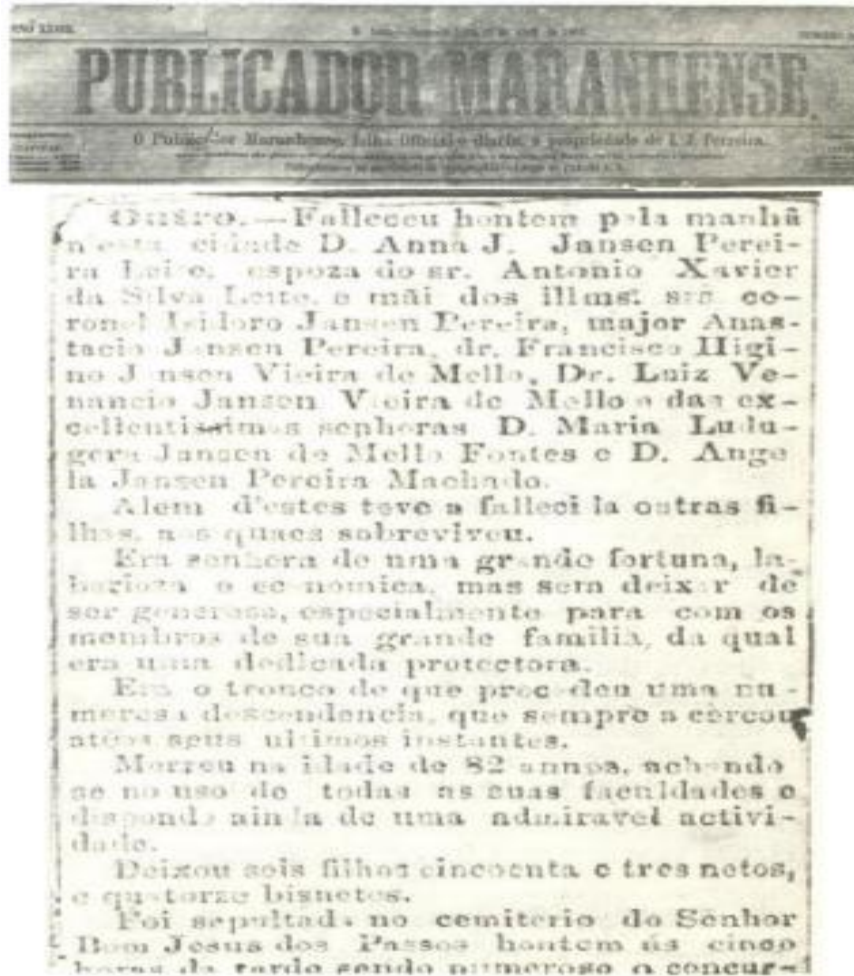 PUBLICADOR MARANHENSE.
O Publicador Maranhense, folha official e diaria, e propriedade de I. J. Ferreira.
Outro.—Falleceu hontem pela manhã
n'esta cidade D. Anna J. Jansen Perei-
ra Leite, espoza do sr. Antonio Xavier
da Silva Leite, e mãi dos illms. srs. co-
ronel Isidoro Jansen Pereira, major Anas-
tacio Jansen Pereira, dr. Francisco Higi-
no Jansen Vieira de Mello, Dr. Luiz Ve-
nancio Jansen Vieira de Mello e das ex-
cellentissimas senhoras D. Maria Ludu-
gera Jansen de Mello Fontes e D. Ange
la Jansen Pereira Machado.
Alem d'estes teve a fallecida outras fi-
lhas, aos quaes sobreviveu.
Era senhora de uma grande fortuna, la-
borioza e economica, mas sem deixar de
ser generosa, especialmente para com os
membros de sua grande familia, da qual
era uma dedicada protectora.
Era o tronco de que procedeu uma nu-
merosa descendencia, que sempre a cercou
atéos seus ultimos instantes.
Morreu na idade de 82 annos, achando
se no uso de todas as suas faculdades e
dispondo ainda de uma admiravel activi-
dade.
Deixou seis filhos cincoenta e tres netos,
e quatorze bisnetos.
Foi sepultada no cemiterio do Senhor
Bom Jesus dos Passos hontem ás cinco
horas da tarde sendo numeroso o concur-